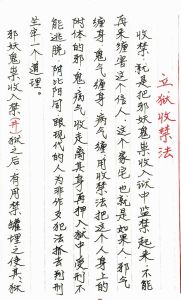 立狱收禁法
收禁：就是把邪妖鬼祟收入狱中监禁起来，不能
再来缠害这个信人，这个家宅，也就是如果人邪气
缠身，鬼气缠身，病气缠身，用收禁法把这个人身上的
附体的邪、鬼、病气收走离其身，再押入狱中受刑不
能逃脱，阴比阳间，跟现代的人为非作歹犯法抓去判刑
坐牢一个道理。
邪妖鬼祟收入禁(井)狱之后，有用禁罐埋之使其狱